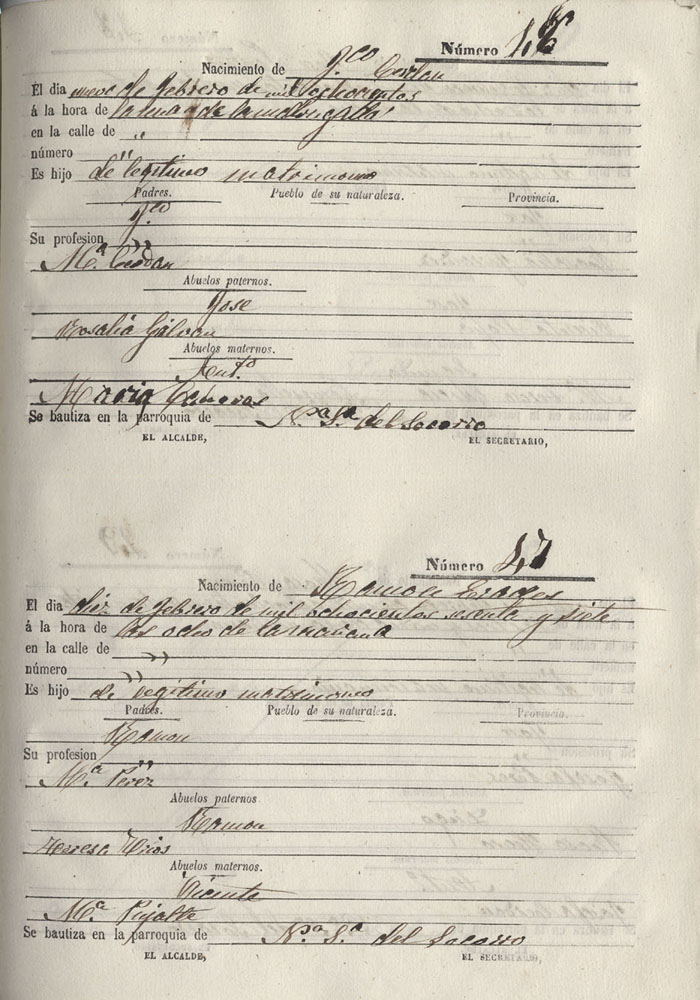 Número 46
Nacimiento de Fco Cerdan
El dia nueve de Febrero de mil ochocientos
á la hora de la una de la
en la calle de "
número "
Es hijo de legitimo matrimonio
Padres. Pueblo de su naturaleza. Provincia.
Fco
Su profesion "
Mª Cerdan
Abuelos paternos.
Jose
Rosalia Galvan
Abuelos maternos.
Antº
Maria Canovas
Se bautiza en la parroquia de Nª Sª del Socorro
EL ALCALDE, EL SECRETARIO,
Número 47
Nacimiento de Ramon Erades
El dia diez de Febrero de mil ochocientos sesenta y siete
á la hora de las ocho de la mañana
en la calle de "
número "
Es hijo de legitimo matrimonio
Padres. Pueblo de su naturaleza. Provincia.
Ramon
Su profesion "
Mª Perez
Abuelos paternos
Ramon
Teresa Rios
Abuelos maternos.
Vicente
Mª Pujalte
Se bautiza en la parroquia de Nª Sª del Socorro
EL ALCALDE, EL SECRETARIO,